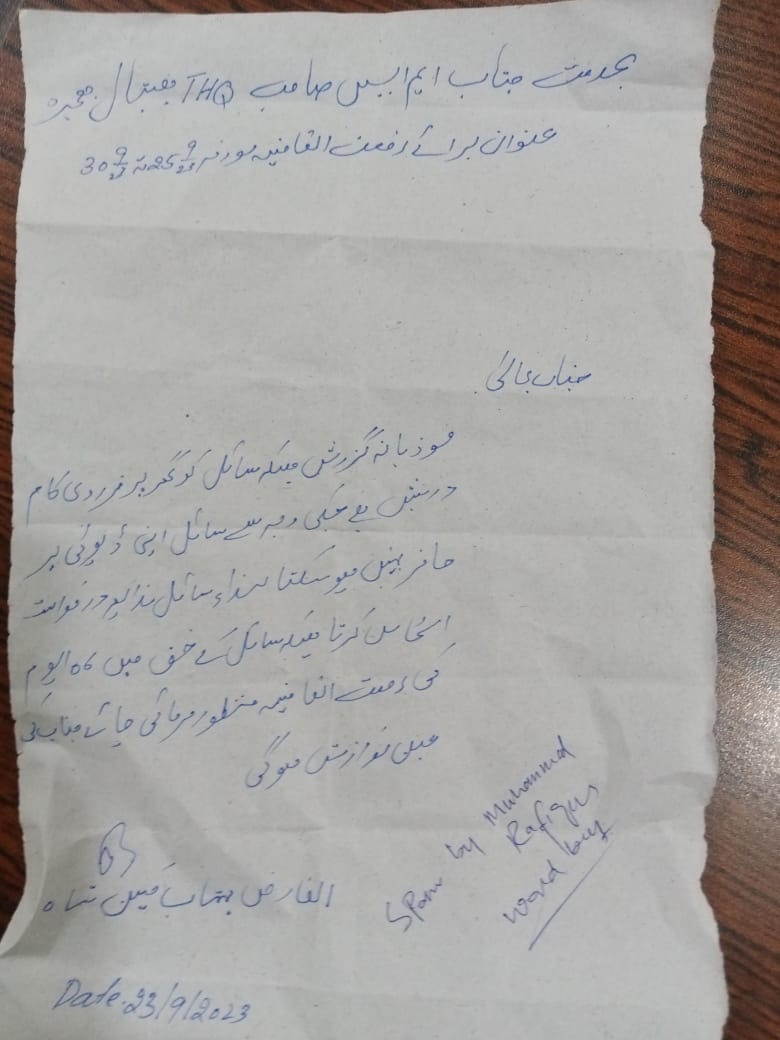 بخدمت جناب ایم ایس صاحب THQ ہسپتال
عنوان برائے رخصت اتفاقیہ مورخہ 25 9/23 تا 30 9/23
جناب عالی
موذبانہ گزارش ہیکہ سائل کو گھر پر ضروری کام
درپیش ہے جسکی وجہ سے سائل اپنی ڈیوٹی پر
حاضر نہیں ہو سکتا لہذاء سائل بذریعہ درخواست
التماس کرتا ہیکہ سائل کے حق میں 06 الیوم
کی رخصت اتفاقیہ منظور فرمائی جائے جناب کی
عین نوازش ہوگی
العارض شاہ
by Muhammad
Rafique
ward boy
Date. 23/9/2023